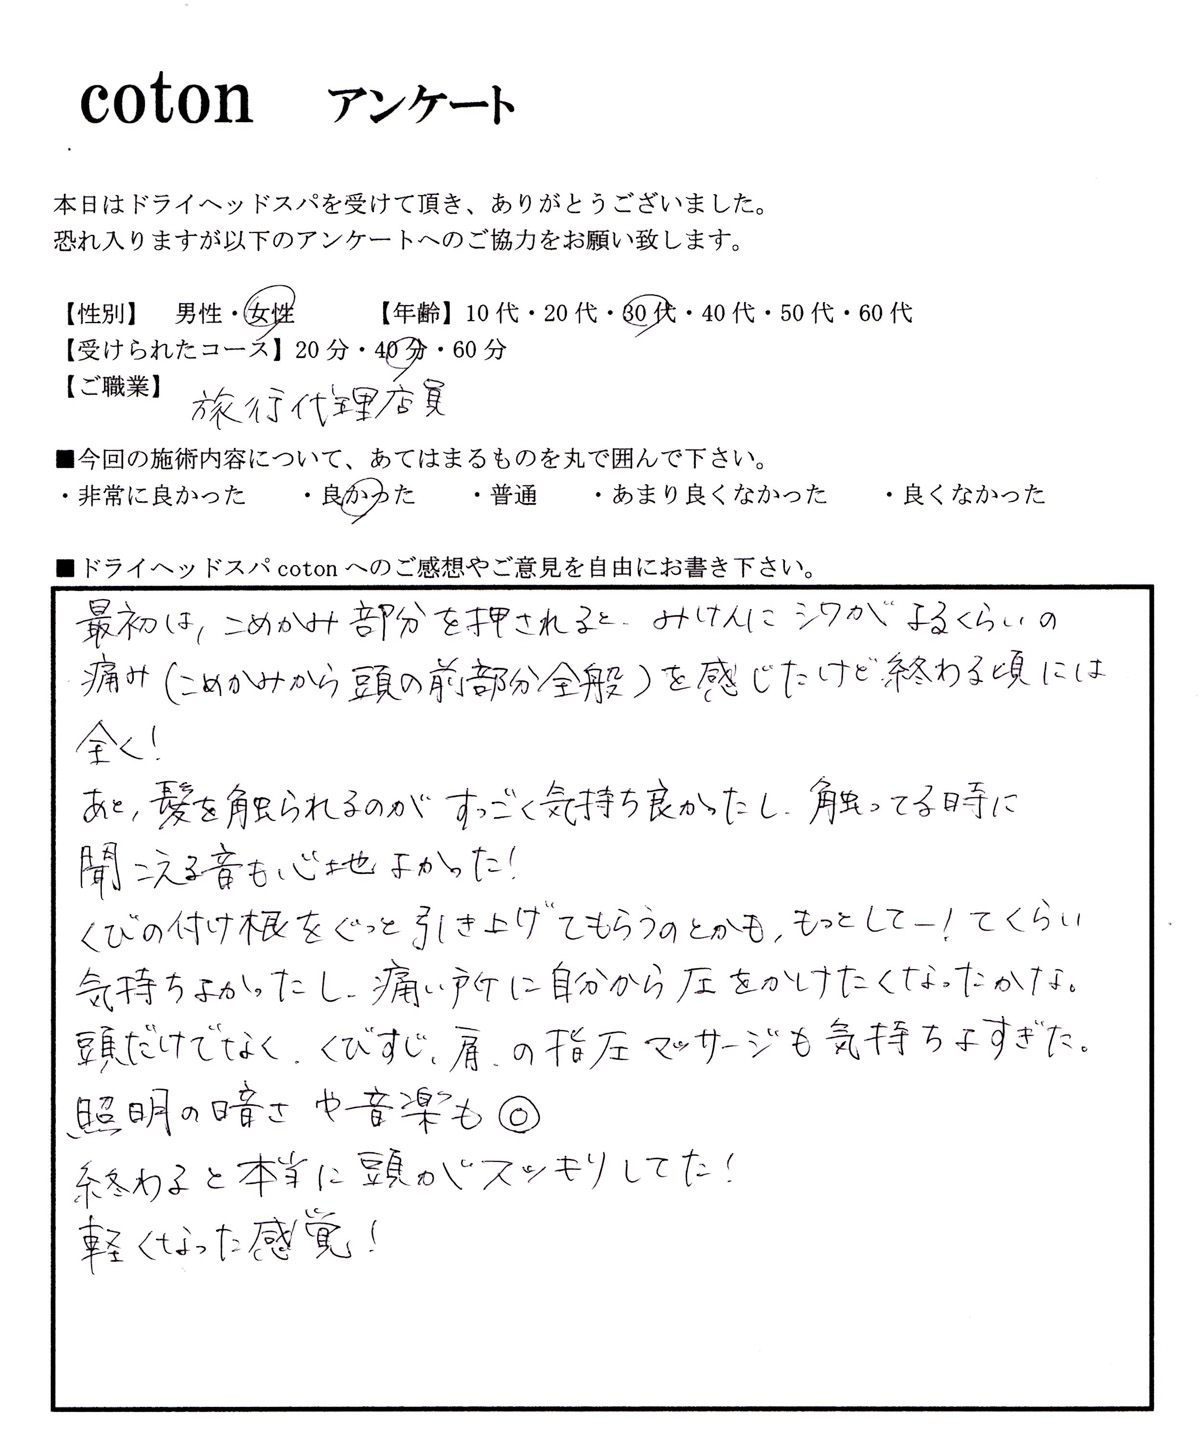 coton アンケート
本日はドライヘッドスパを受けて頂き、ありがとうございました。
恐れ入りますが以下のアンケートへのご協力をお願い致します。
【性別】 男性・女性 【年齢】10代・20代・30代・40代・50代・60代
【受けられたコース】20分・40分・60分
【ご職業】 旅行代理店員
■今回の施術内容について、あてはまるものを丸で囲んで下さい。
・非常に良かった ・良かった ・普通 ・あまり良くなかった ・良くなかった
■ドライヘッドスパcotonへのご感想やご意見を自由にお書き下さい。
最初は、こめかみ部分を押されると、みけんにシワがよるくらいの
痛み(こめかみから頭の前部分全般)を感じたけど終わる頃には
全く!
あと、髪を触られるのがすっごく気持ち良かったし、触ってる時に
聞こえる音も心地よかった!
くびの付け根をぐっと引き上げてもらうのとかも、もっとしてー!てくらい
気持ちよかったし、痛い所に自分から圧をかけたくなったかな。
頭だけでなく、くびすじ、肩、の指圧マッサージも気持ちよすぎた。
照明の暗さや音楽も◎
終わると本当に頭がスッキリしてた!
軽くなった感覚!